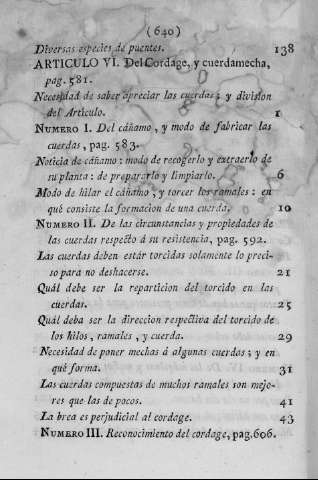 (640)
Diversas especies de puentes. 138
ARTICULO VI. Del Cordage, y cuerdamecha,
pag. 581.
Necesidad de saber apreciar las cuerdas; y division
del Artículo. 1
NUMERO I. Del cáñamo, y modo de fabricar las
cuerdas, pag. 583.
Noticia de cáñamo: modo de recogerlo y extraerlo de
su planta: de prepararlo y limpiarlo. 6
Modo de hilar el cáñamo, y torcer los ramales: en
qué consiste la formacion de una cuerda. 10
NUMERO II. De las circunstancias y propiedades de
las cuerdas respecto á su resistencia, pag. 592.
Las cuerdas deben estár torcidas solamente lo preci-
so para no deshacerse. 21
Quál debe ser la reparticion del torcido en las
cuerdas. 25
Quál deba ser la direccion respectiva del torcido de
los hilos, ramales, y cuerda. 29
Necesidad de poner mechas á algunas cuerdas; y en
qué forma. 31
Las cuerdas compuestas de muchos ramales son mejo-
res que las de pocos. 41
La brea es perjudicial al cordage. 43
NUMERO III. Reconocimiento del cordage, pag. 606.